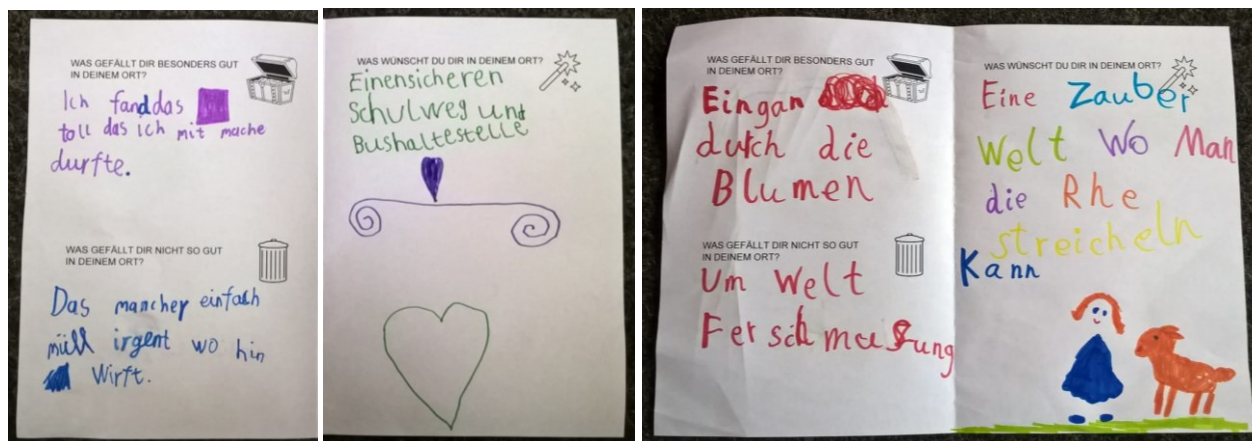 WAS GEFÄLLT DIR BESONDERS GUT
IN DEINEM ORT?
Ich fand das
toll das ich mit mache
durfte.
WAS GEFÄLLT DIR NICHT SO GUT
IN DEINEM ORT?
Das mancher einfach
müll irgent wo hin
Wirft.
WAS WÜNSCHT DU DIR IN DEINEM ORT?
Einensicheren
Schulweg unt
Bushaltestelle
WAS GEFÄLLT DIR BESONDERS GUT
IN DEINEM ORT?
Eingan
durch die
Blumen
WAS GEFÄLLT DIR NICHT SO GUT
IN DEINEM ORT?
Um Welt
Fer sch mu sung
WAS WÜNSCHT DU DIR IN DEINEM ORT?
Eine Zauber
Welt Wo Man
die Rhe
streicheln
Kann